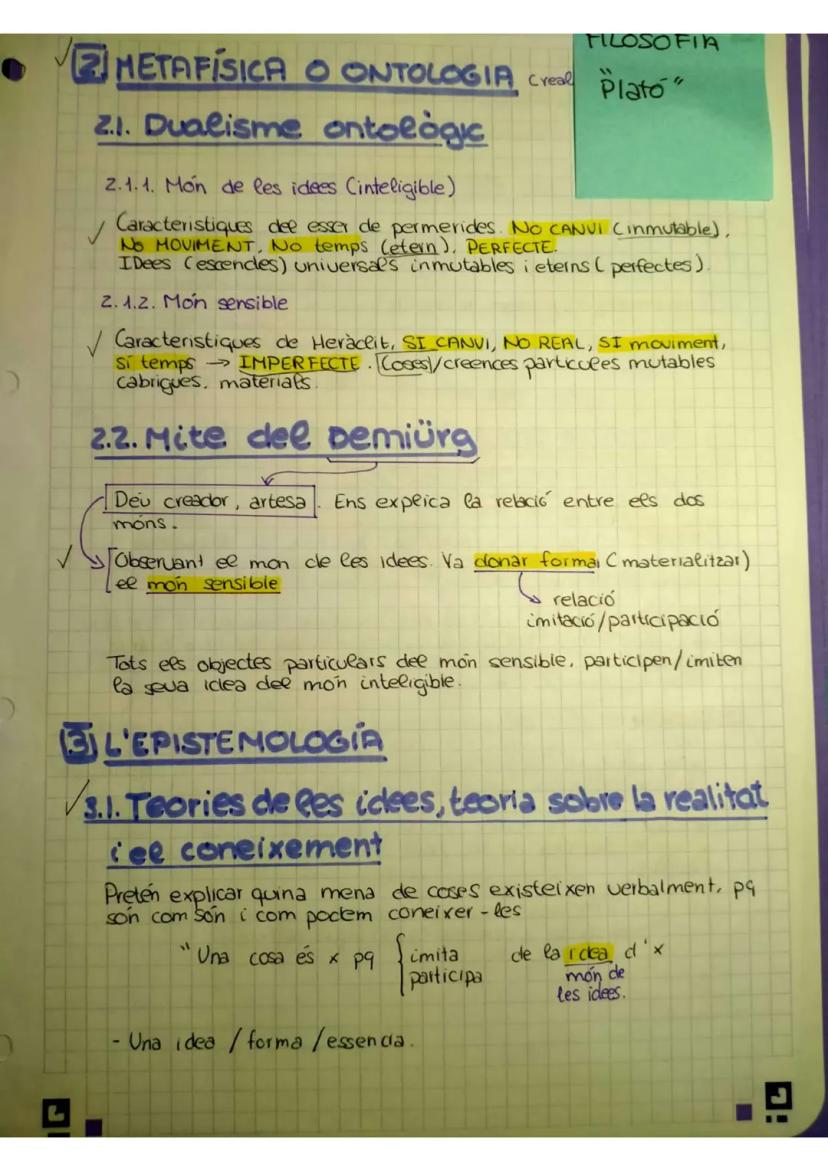 FILOSOFIA
"Plató"
2 METAFÍSICA O ONTOLOGIA (real
2.1. Dualisme ontològic
2.1.1. Món de les idees (inteligible)
Caracteristiques del esser de permerides. NO CANVI (inmutable),
No MOVIMENT, No temps (etern), PERFECTE.
IDees (escencies) universals inmutables i eterns (perfectes).
2.1.2. Món sensible
Caracteristiques de Heràclit, SI CANVI, NO REAL, SI moviment,
Sí temps → IMPERFECTE. Coses/creences particules mutables
cabrigues. materials.
2.2. Mite del Demiürg
Deu creador, artesa. Ens explica la relació entre els dos
móns.
Observant el mon de les idees. Va donar forma, (materialitzar)
el món sensible
relació
imitació/participació
Tots els objectes particulars del món sensible, participen/imiten
la seua idea del món inteligible.
3 L'EPISTEMOLOGÍA
3.1. Teories de les idees, teoria sobre la realitat
i el coneixement
Pretén explicar quina mena de coses existeixen verbalment, pq
són com són i com podem coneixer-les
"Una cosa és x pq imita de la idea d'x
participa món de
les idees.
- Una idea / forma / essencia.